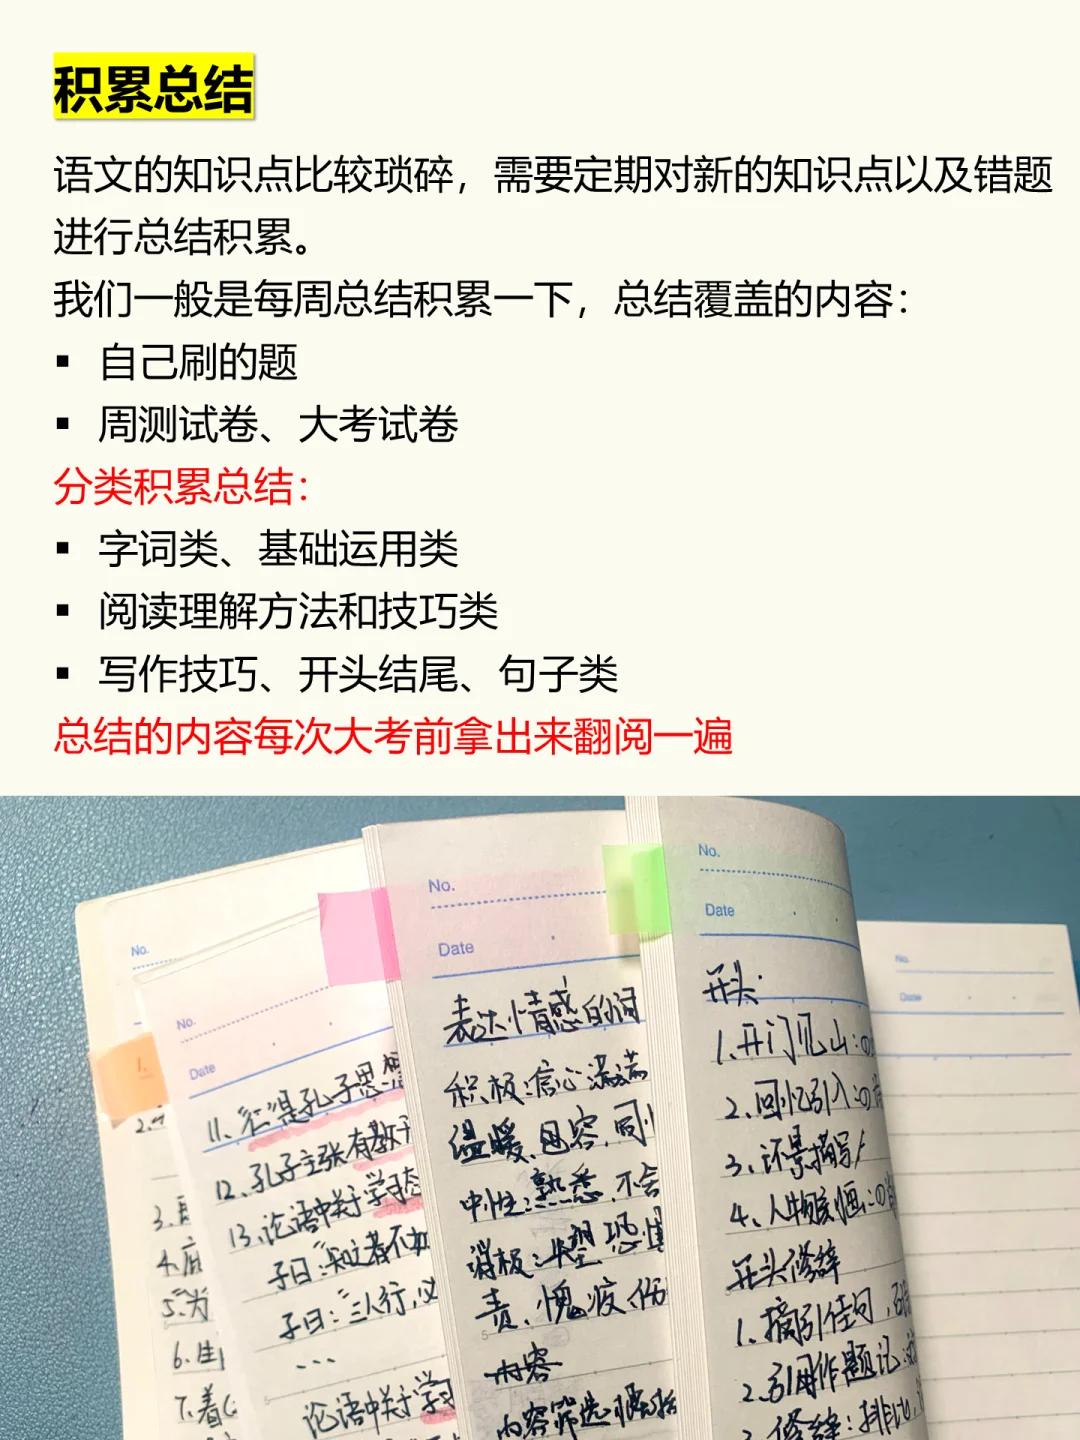 积累总结
语文的知识点比较琐碎，需要定期对新的知识点以及错题
进行总结积累。
我们一般是每周总结积累一下，总结覆盖的内容：
▪ 自己刷的题
▪ 周测试卷、大考试卷
分类积累总结：
▪ 字词类、基础运用类
▪ 阅读理解方法和技巧类
▪ 写作技巧、开头结尾、句子类
总结的内容每次大考前拿出来翻阅一遍
No.
1.
2.
3.
4.
5.为
6.
7.着
No.
Date
11、"仁"是孔子思想
12、孔子主张有教
13、论语中关于学习态
子曰:"知之者不如
子曰:"三人行,
...
论语中关于学习
No.
Date
表达情感的词
积极:信心满满
温暖、包容、同
中性:熟悉、不舍
消极:失望 恐惧
责、愧疚、伤
内容
内容筛选:概括
No.
Date
开头:
1、开门见山:
2、回忆引入:
3、环景描写
4、人物刻画:
开头修辞
1、摘引佳句,
2、引用作题记:
修辞:排比,
No.
Date